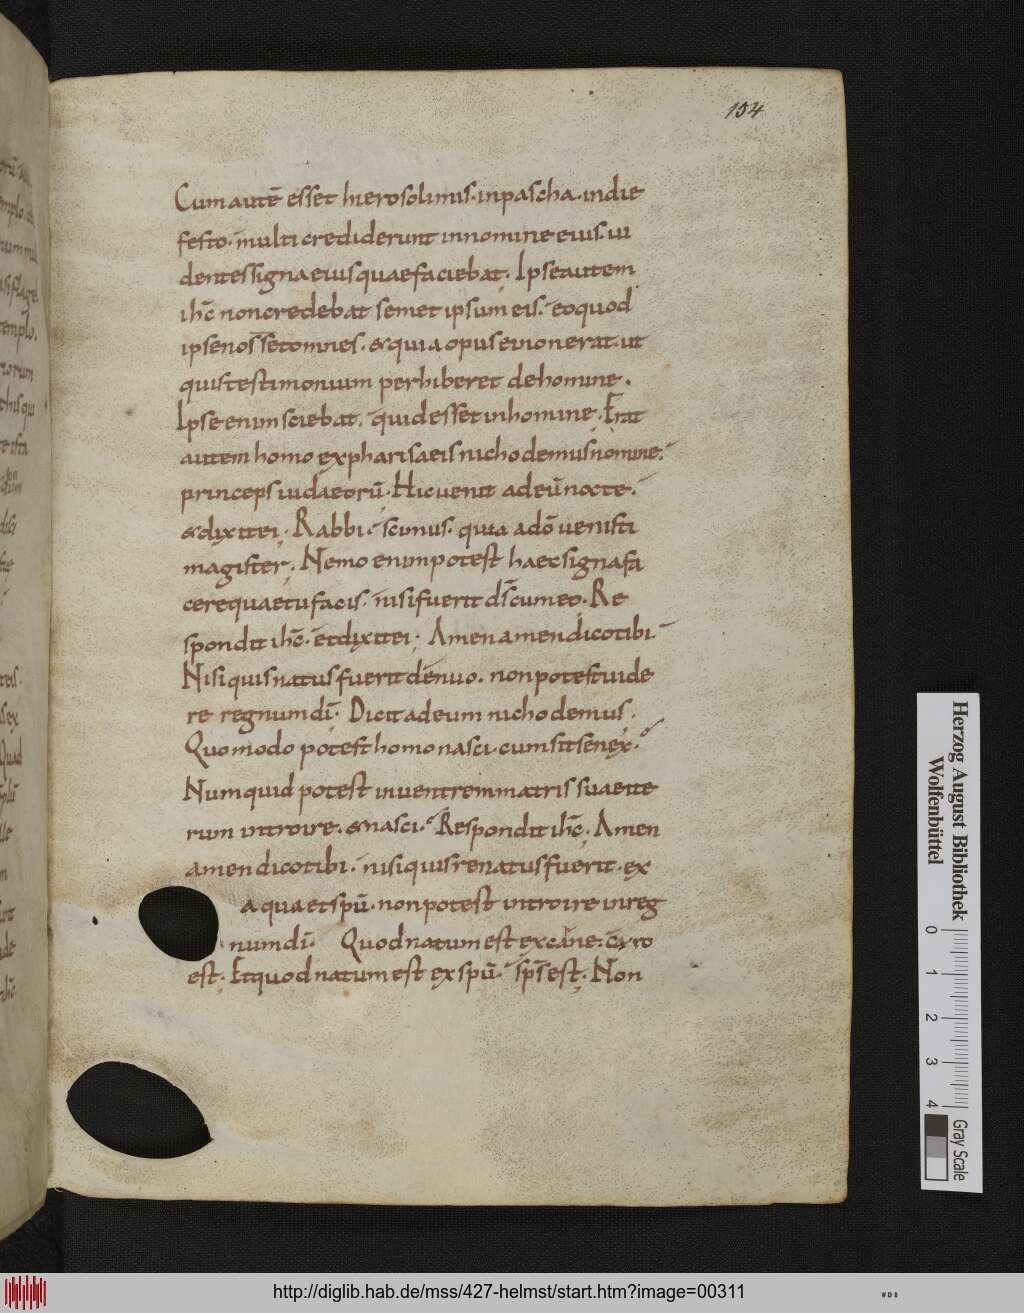 154
Cum autē esset hierosolimis. in pascha. in die
festo. multi crediderunt in nomine eius. ui
dentes signa eius quae faciebat. Ipse autem
ihc̄ non credebat semet ipsum eis. eo quod
ipse nosset omnes. & quia opus ei non erat. ut
quis testimonium perhiberet de homine.
Ipse enim sciebat. quid esset in homine. Erat
autem homo ex pharisaeis nichodemus nomine.
princeps iudaeorū. Hic uenit ad eū nocte.
& dixit ei. Rabbi. scimus. quia a dō uenisti
magister. Nemo enim potest haec signa fa
cere quae tu facis. nisi fuerit ds̄ cum eo. Re
spondit ihc̄. et dixit ei. Amen amen dico tibi.
Nisi quis natus fuerit denuo. non potest uide
re regnum dī. Dicit ad eum nichodemus.
Quomodo potest homo nasci. cum sit senex.
Numquid potest in uentrem matris suae ite
rum introire. & nasci. Respondit ihc̄. Amen
amen dico tibi. nisi quis renatus fuerit. ex
aqua et spū. non potest introire in reg
num dī. Quod natum est ex carne. caro
est. Et quod natum est ex spū. sps̄ est. Non
Herzog August Bibliothek
Wolfenbüttel
0 1 2 3 4
Gray Scale
http://diglib.hab.de/mss/427-helmst/start.htm?image=00311